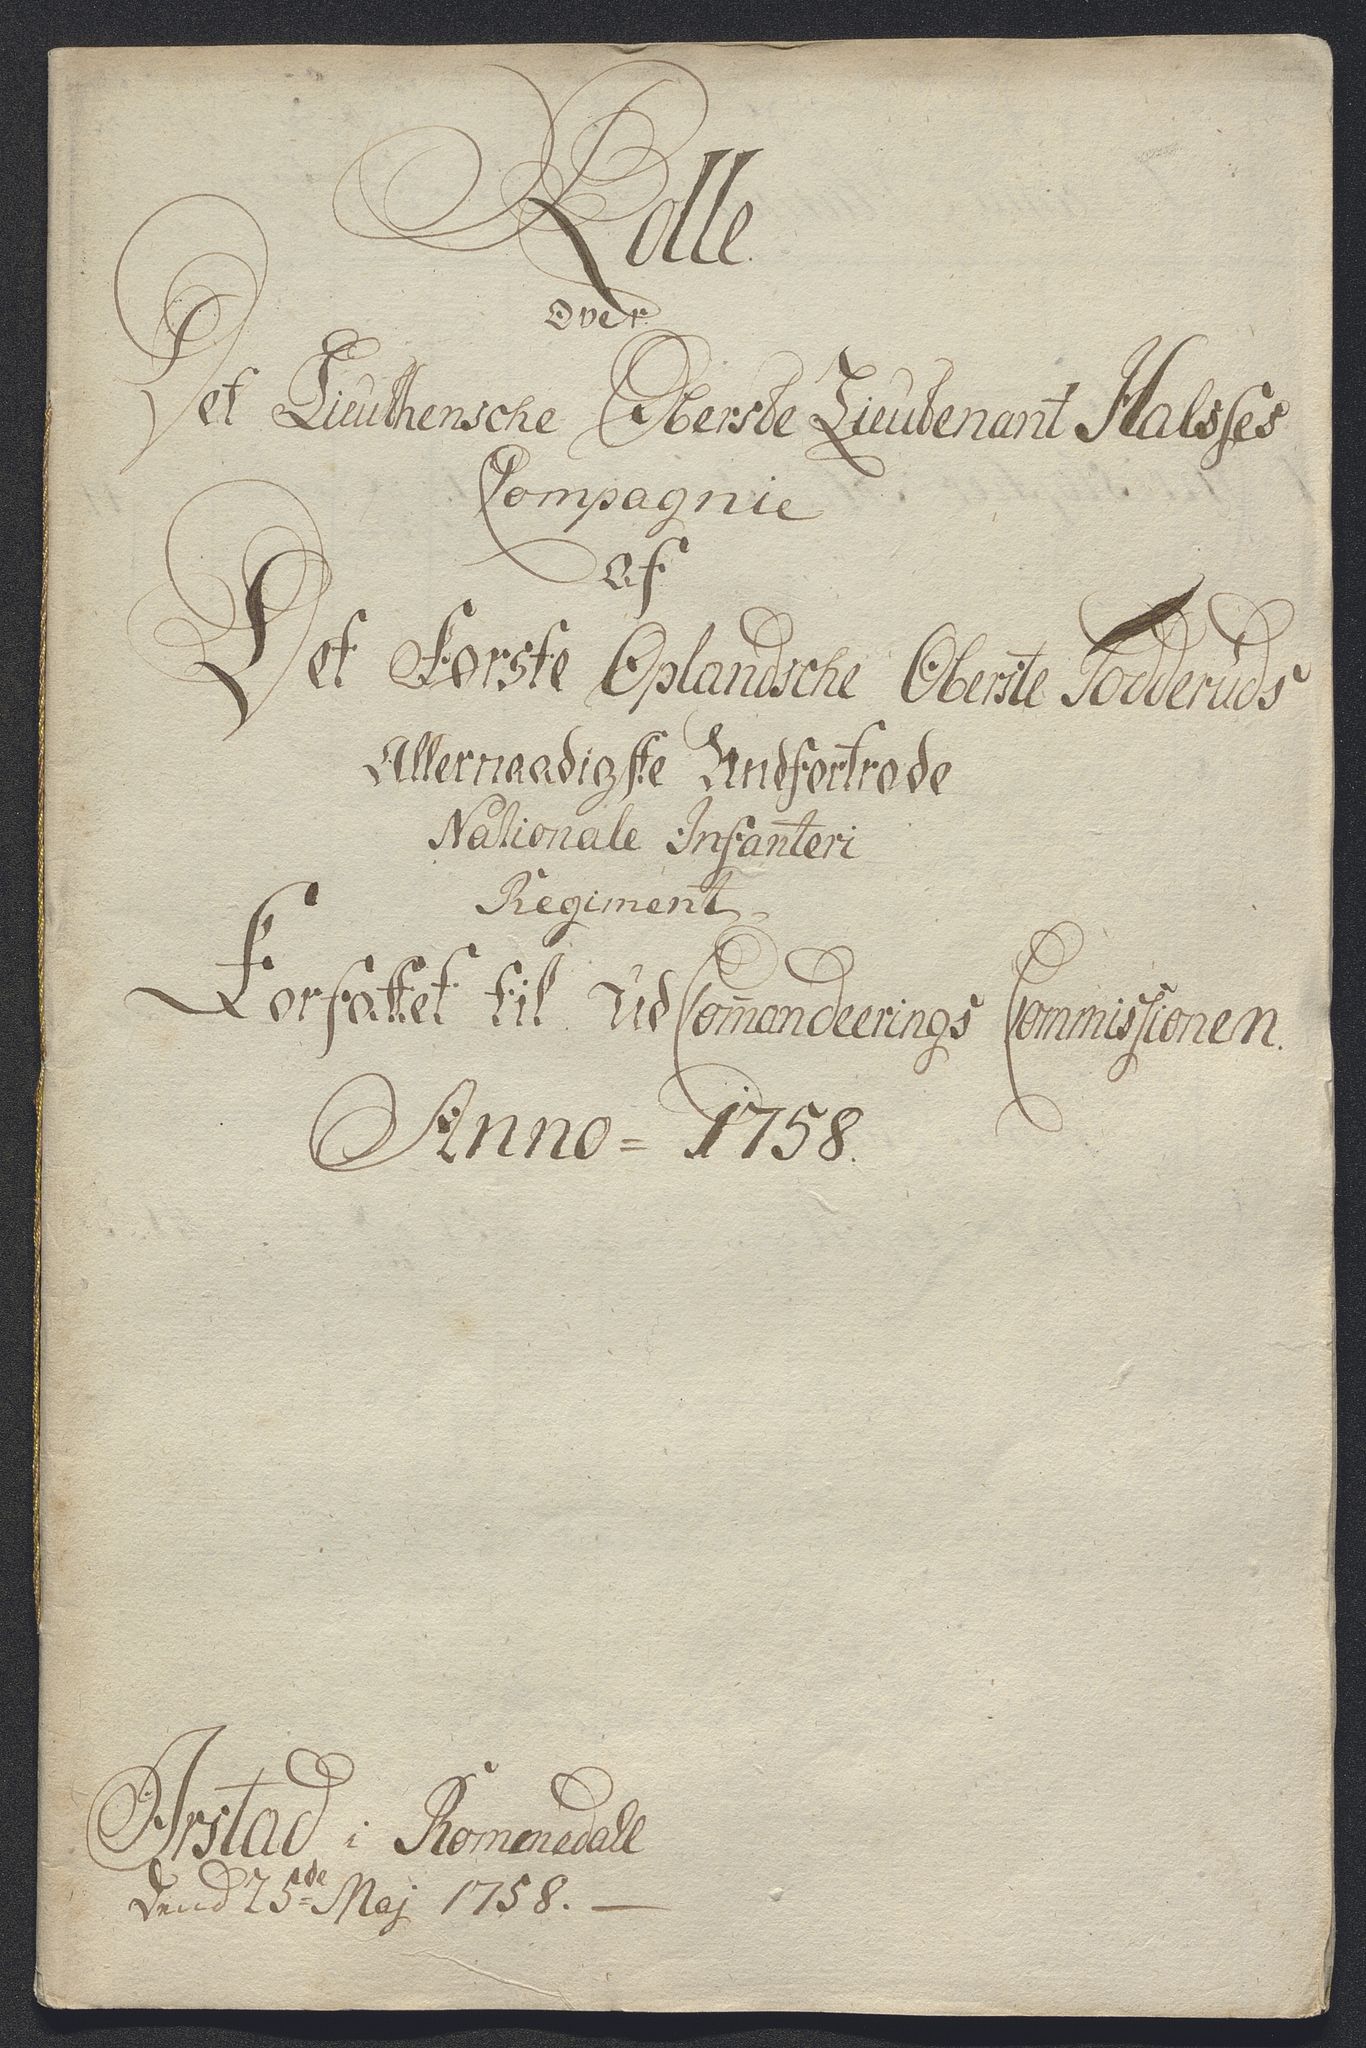 Rolle
Over
Det Lieuthensche Oberste Lieutenant Halsses
Compagnie
Af
Det Første Oplandsche Oberste Todderuds
Allernaadigste Andfortrode
Nationale Infanteri
Regiment
Forfattet til UdCom̄andeerings Commissionen.
Anno= 1758.
Arstad i Rommedall
Dend 25de Maj 1758.